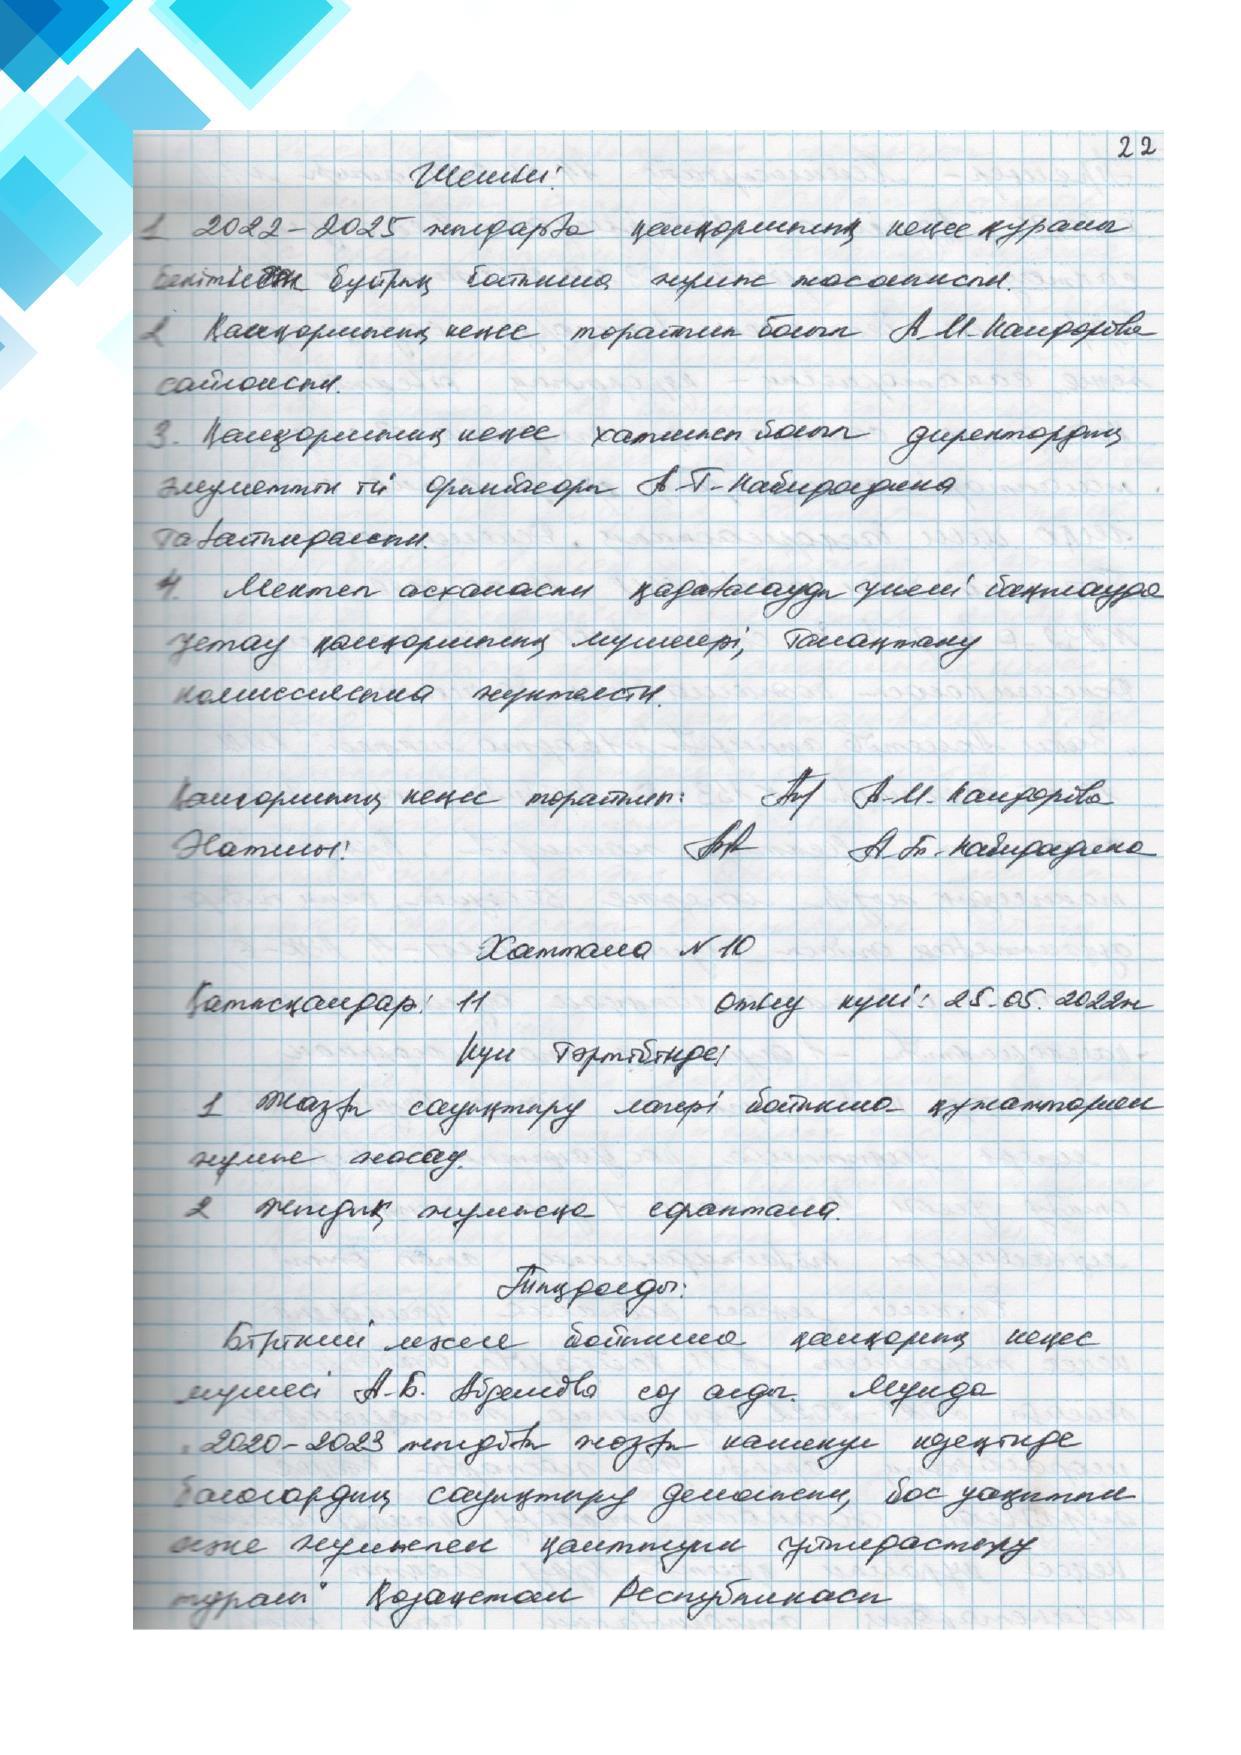 22
Шешімі:
1 2022-2025 жылдарға қамқоршылық кеңес құрамы
бекітілген бұйрық бойынша жұмыс жасалысын.
2 Қамқоршылық кеңес төрайымы болып А.М. Каидарова
сайлансын.
3. Қамқоршылық кеңес хатшысы болып директордың
әлуметтік ісі орынбасары А.Т. Набирадина
тағайындалсын.
4. Мектеп асханасын қадағалауды үнемі бақылауда
ұстау қамқоршылық мүшелері, тамақтану
комиссиясына жүктелсін.
Қамқоршылық кеңес төрайымы: А.М. Каидарова
Хатшы: А.Т. Набирадина
Хаттама №10
Қатысқандар: 11 Өтілу күні: 25.05.2022ж
Күн тәртібінде:
1 Жазғы сауықтыру лагері бойынша құжаттармен
жұмыс жасау.
2 Жылдық жұмысқа сараптама.
Тыңдалды:
Бірінші мәселе бойынша қамқорлық кеңес
мүшесі А.Б. Абенова сөз алды. Мұнда
"2020-2023 жылдағы жазғы каникул кезеңінде
балалардың сауықтыру демалысын, бос уақытын
және жұмыспен қамтылуын ұйымдастыру
туралы" Қазақстан Республикасы